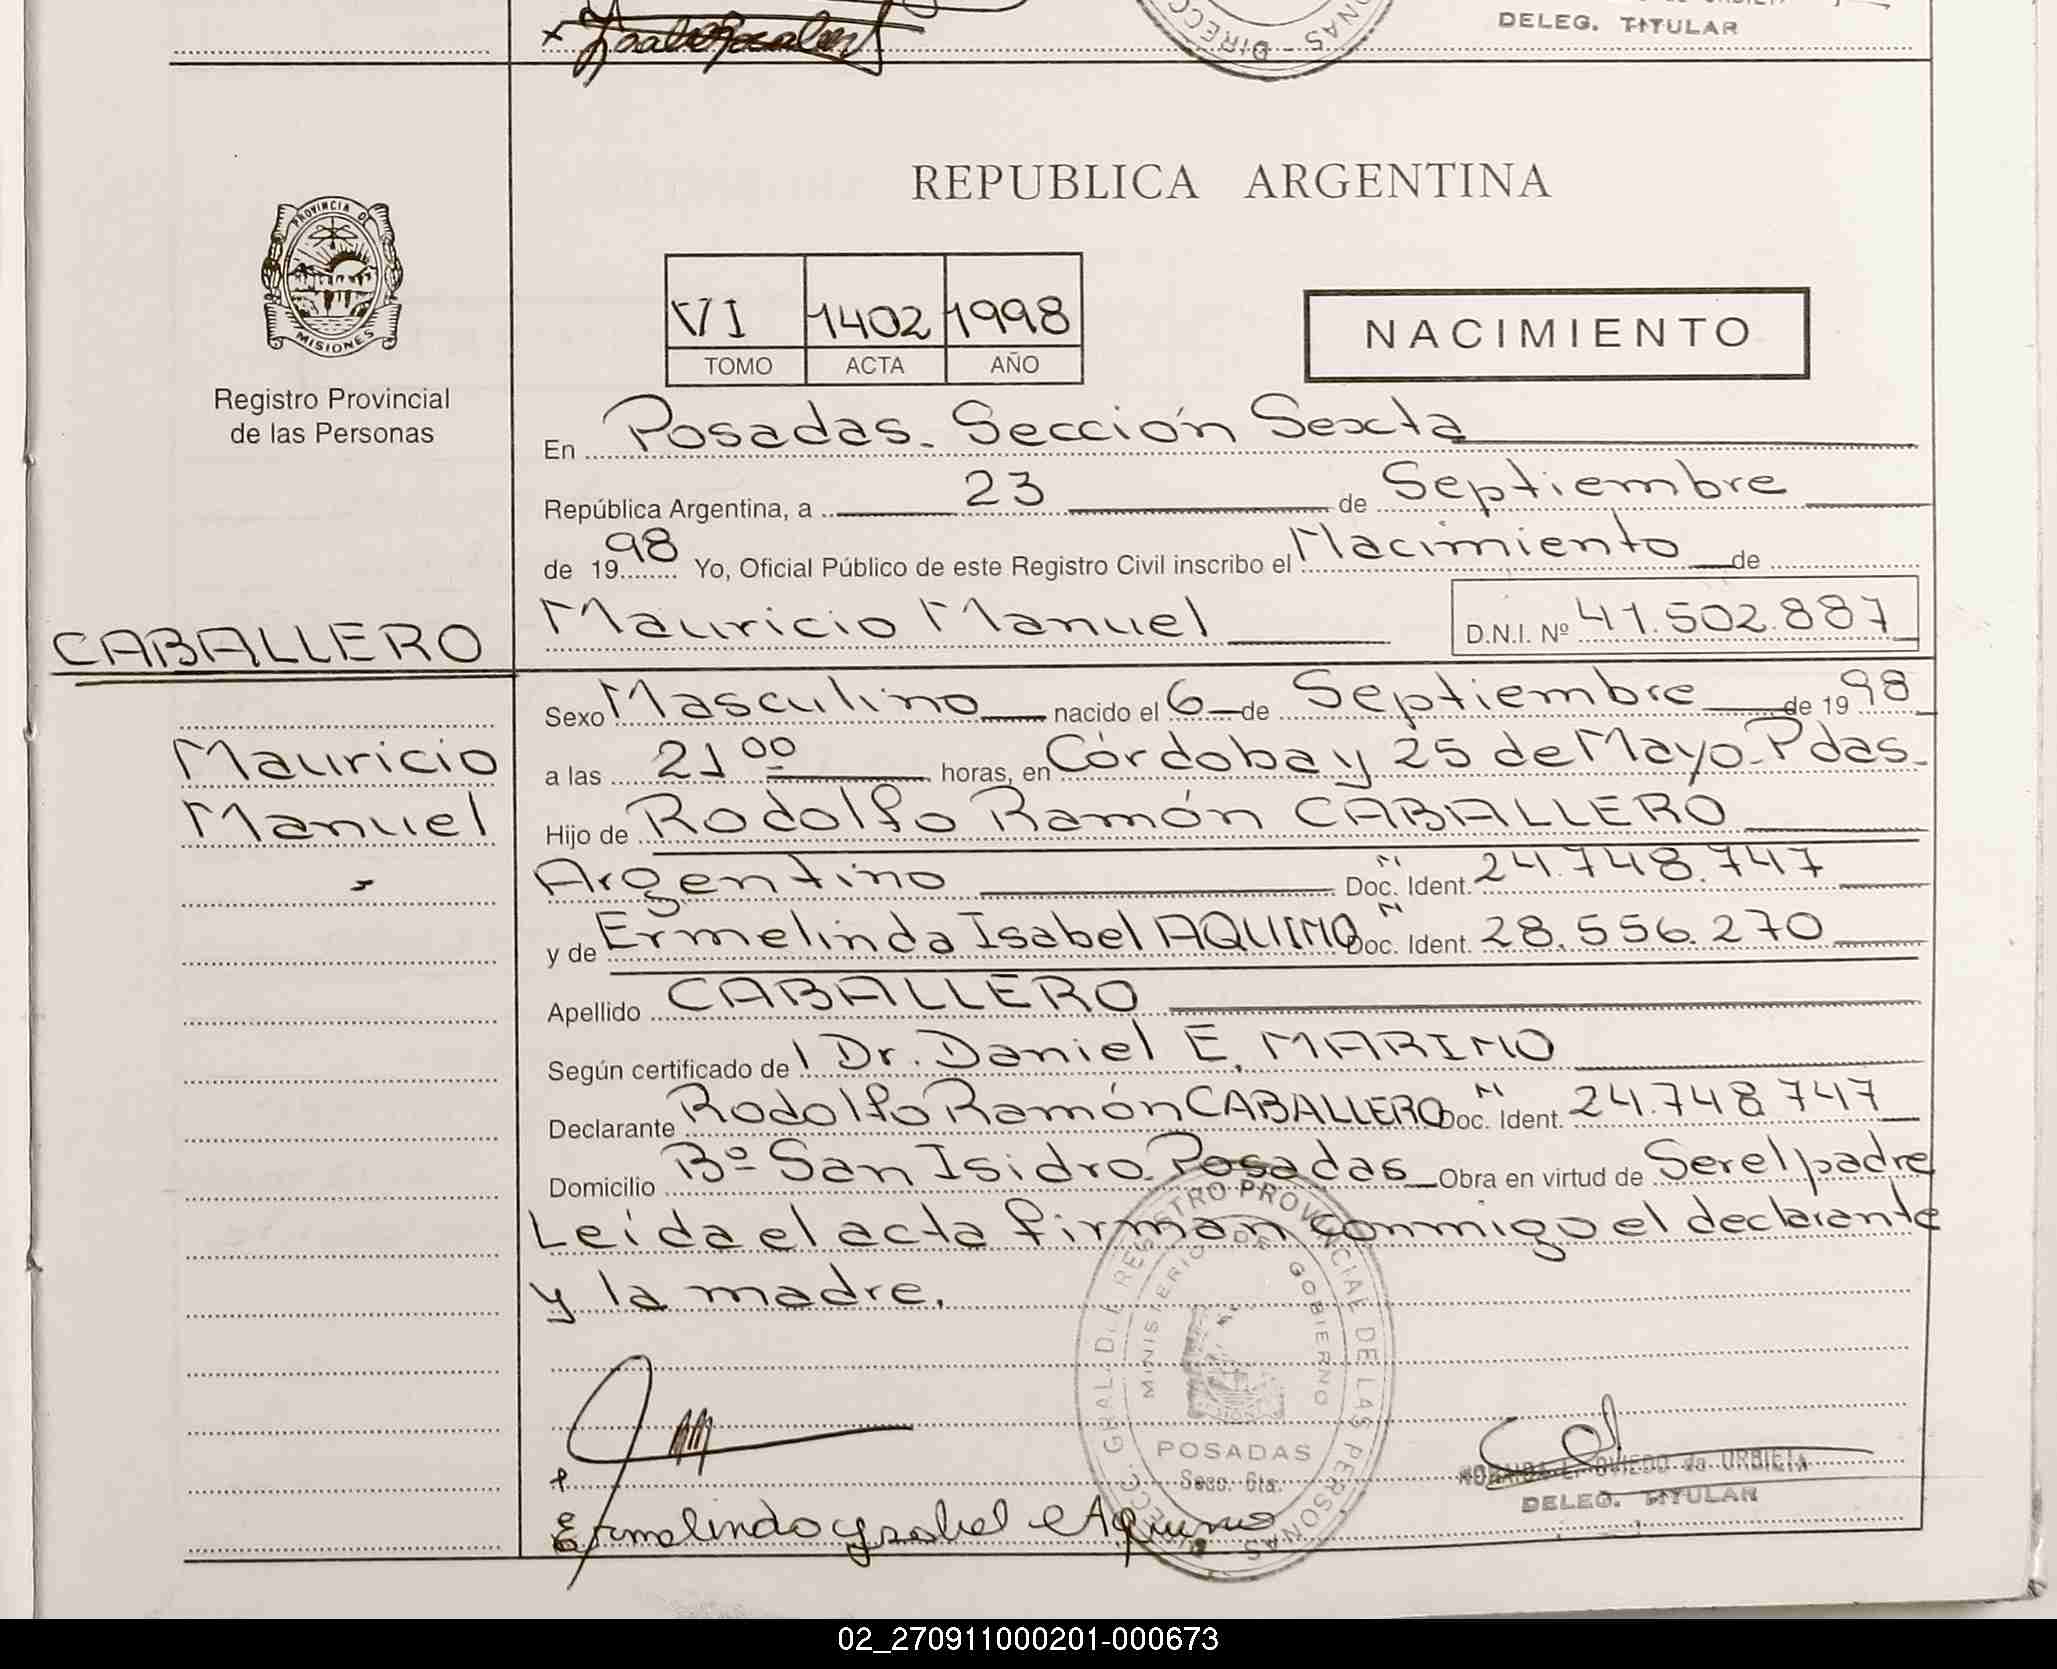 DELEG. TITULAR
PROVINCIA DE
MISIONES
Registro Provincial
de las Personas
REPUBLICA ARGENTINA
VI 1402 1998
TOMO ACTA AÑO
NACIMIENTO
En Posadas. Sección Sexta
República Argentina, a 23 de Septiembre
de 1998 Yo, Oficial Público de este Registro Civil inscribo el Nacimiento de
CABALLERO
Mauricio Manuel D.N.I. Nº 41.502.887
Mauricio
Manuel
Sexo Masculino nacido el 6 de Septiembre de 1998
a las 21 00 horas, en Córdoba y 25 de Mayo. Pdas.
Hijo de Rodolfo Ramón CABALLERO
Argentino Doc. N Ident. 24.748.747
y de Ermelinda Isabel AQUINO Doc. N Ident. 28.556.270
Apellido CABALLERO
Según certificado de l Dr. Daniel E. MARINO
Declarante Rodolfo Ramón CABALLERO Doc. N Ident. 24.748.747
Domicilio Bº San Isidro. Posadas Obra en virtud de Ser el padre
Leída el acta firman conmigo el declarante
y la madre.
DIRECC. GRAL. DEL REGISTRO PROVINCIAL DE LAS PERSONAS
MINISTERIO DE GOBIERNO
POSADAS
Secc. 6ta.
OVIEDO de URBIETA
DELEG. TITULAR
Ermelinda Ysabel Aquino
02_270911000201-000673